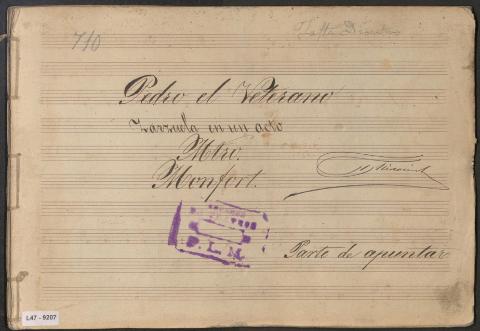 710
Falta
Pedro el Veterano
Zarzuela en un acto
Mtro.
Monfort.
P. L. M.
Parte de apuntar
L47 - 9207